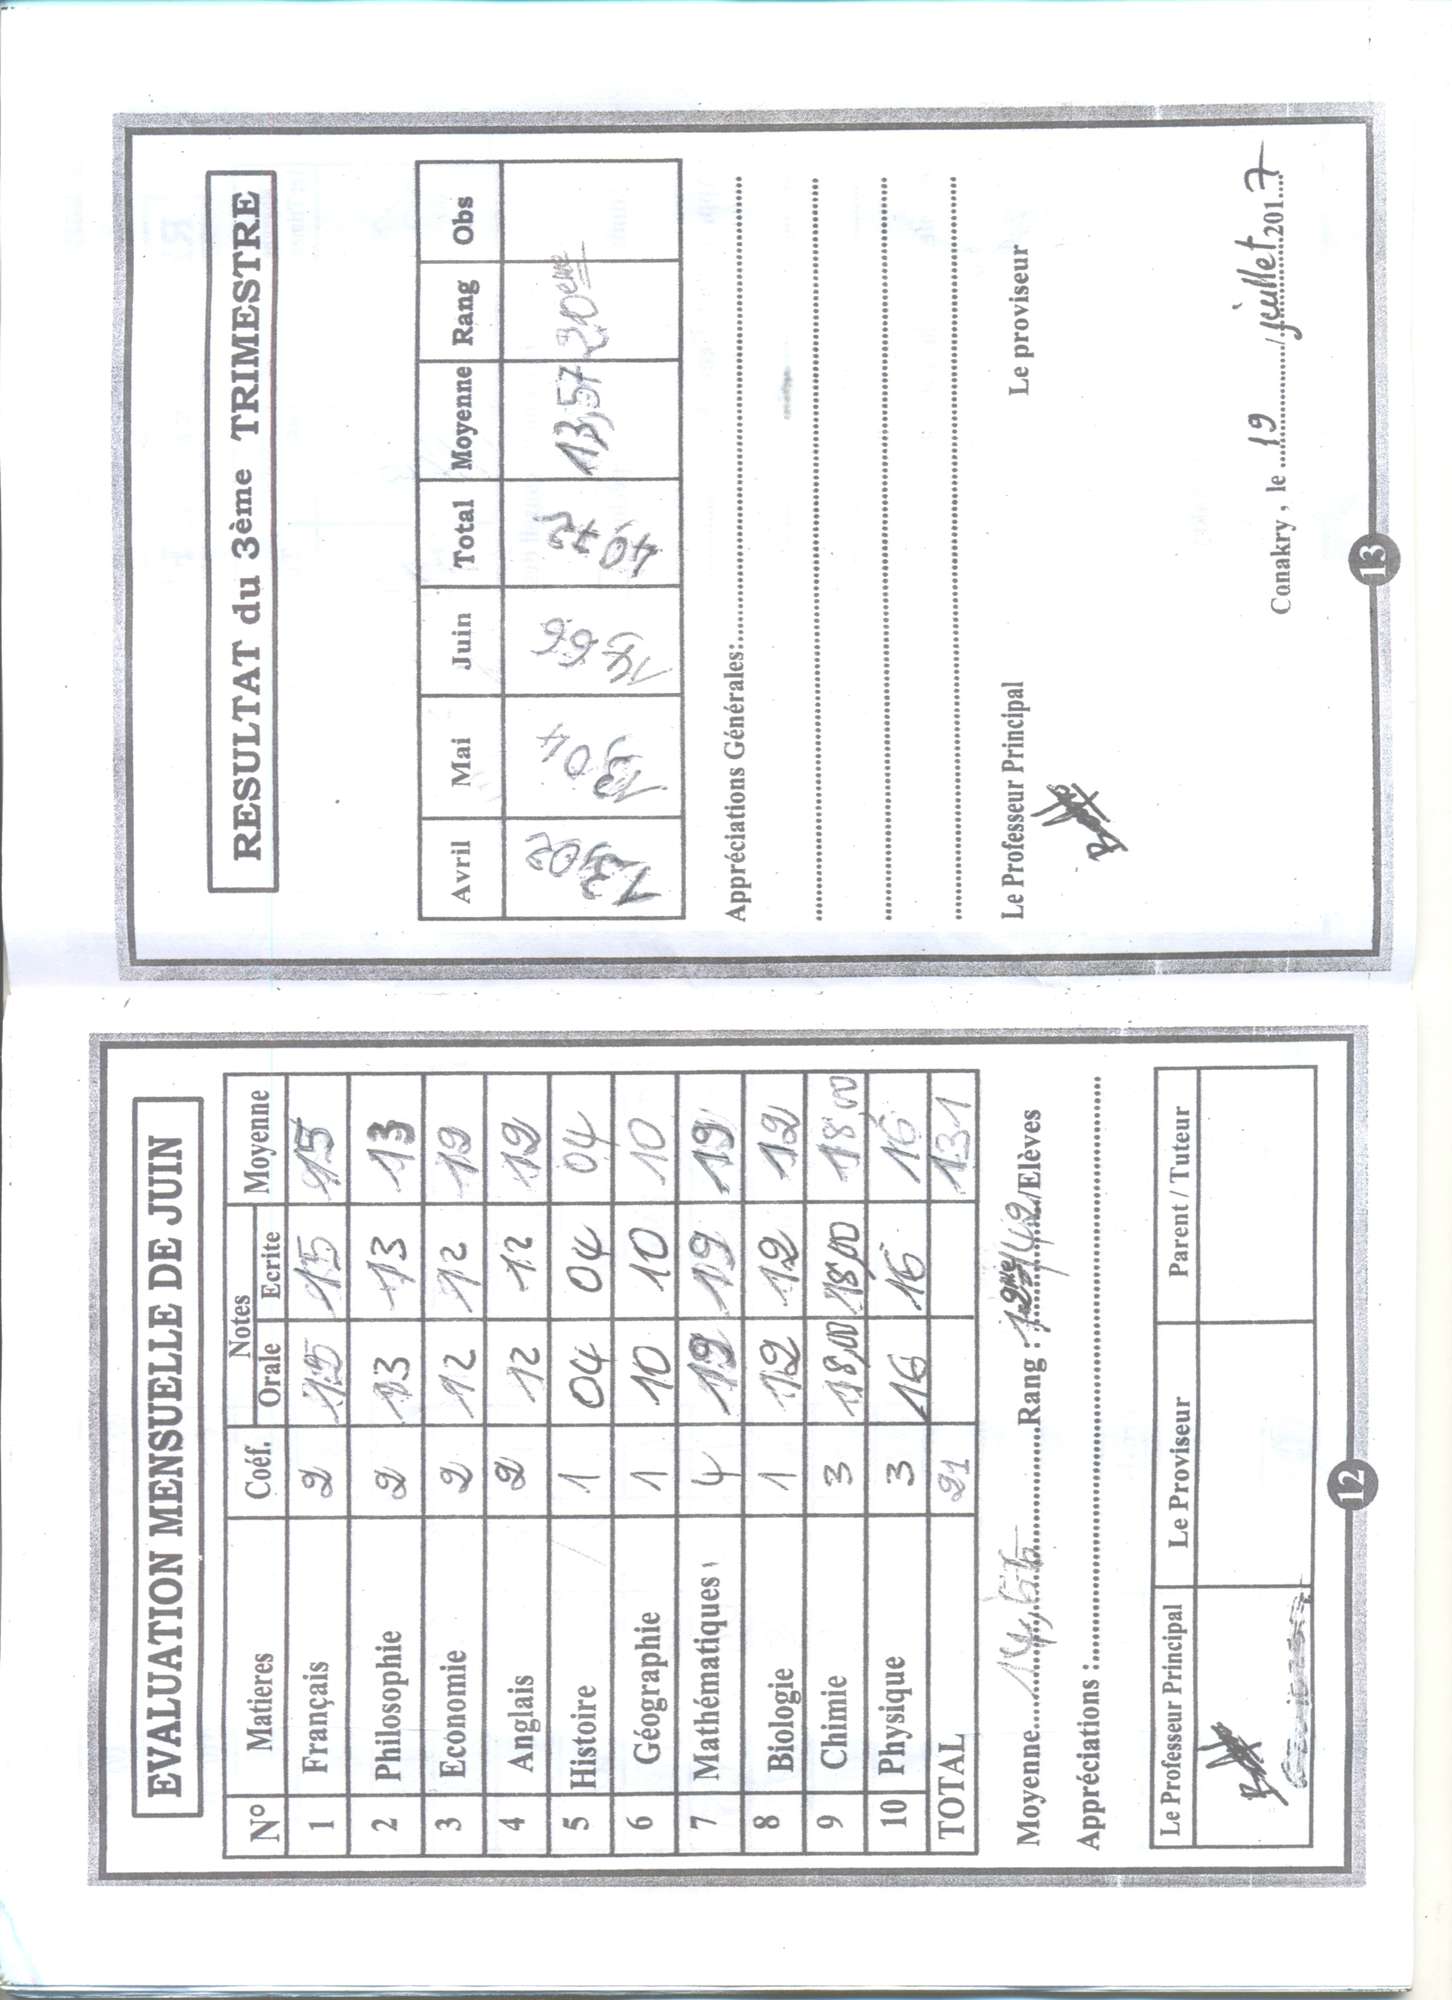 EVALUATION MENSUELLE DE JUIN
N° Matieres Coéf. Notes Moyenne
Orale Ecrite
1 Français 2 15 15 15
2 Philosophie 2 13 13 13
3 Economie 2 12 12 12
4 Anglais 2 12 12 12
5 Histoire 1 04 04 04
6 Géographie 1 10 10 10
7 Mathématiques 4 19 19 19
8 Biologie 1 12 12 12
9 Chimie 3 18,00 18,00 18,00
10 Physique 3 16 16 16
TOTAL 21 131
Moyenne....14,66....Rang : 12ème/42 Elèves
Appréciations :
Le Professeur Principal Le Proviseur Parent / Tuteur
12
RESULTAT du 3ème TRIMESTRE
Avril Mai Juin Total Moyenne Rang Obs
13,02 13,04 14,66 40,72 13,57 20eme
Appréciations Générales:
Le Professeur Principal Le proviseur
Conakry , le 19 / juillet 2017
13